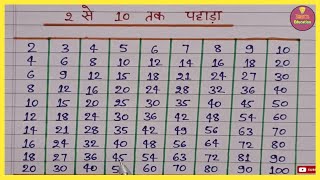 2 से 10 तक पहाड़ा
2 3 4 5 6 7 8 9 10
4 6 8 10 12 14 16 18 20
6 9 12 15 18 21 24 27 30
8 12 16 20 24 28 32 36 40
10 15 20 25 30 35 40 45 50
12 18 24 30 36 42 48 54 60
14 21 28 35 42 49 56 63 70
16 24 32 40 48 56 64 72 80
18 27 36 45 54 63 72 81 90
20 30 40 60 70 80 90 100